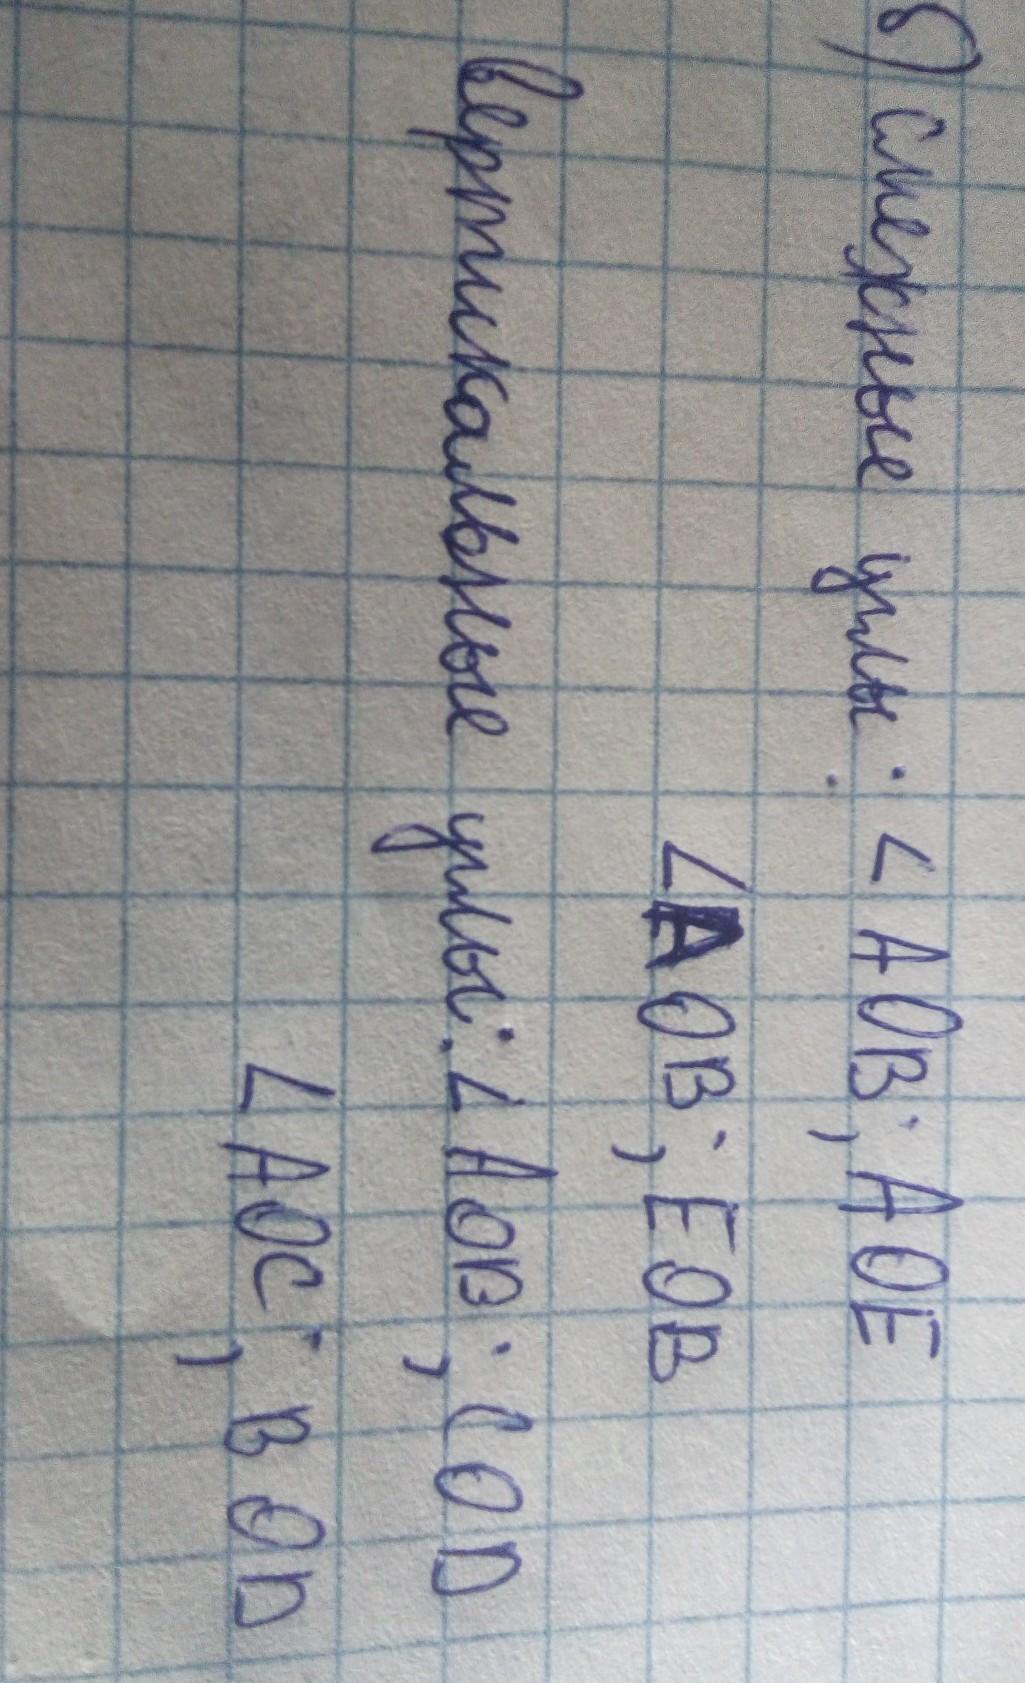 б) Смежные углы: ∠ AOB; AOE
∠AOB; EOB
Вертикальные углы: ∠ AOB; COD
∠ AOC; BOD